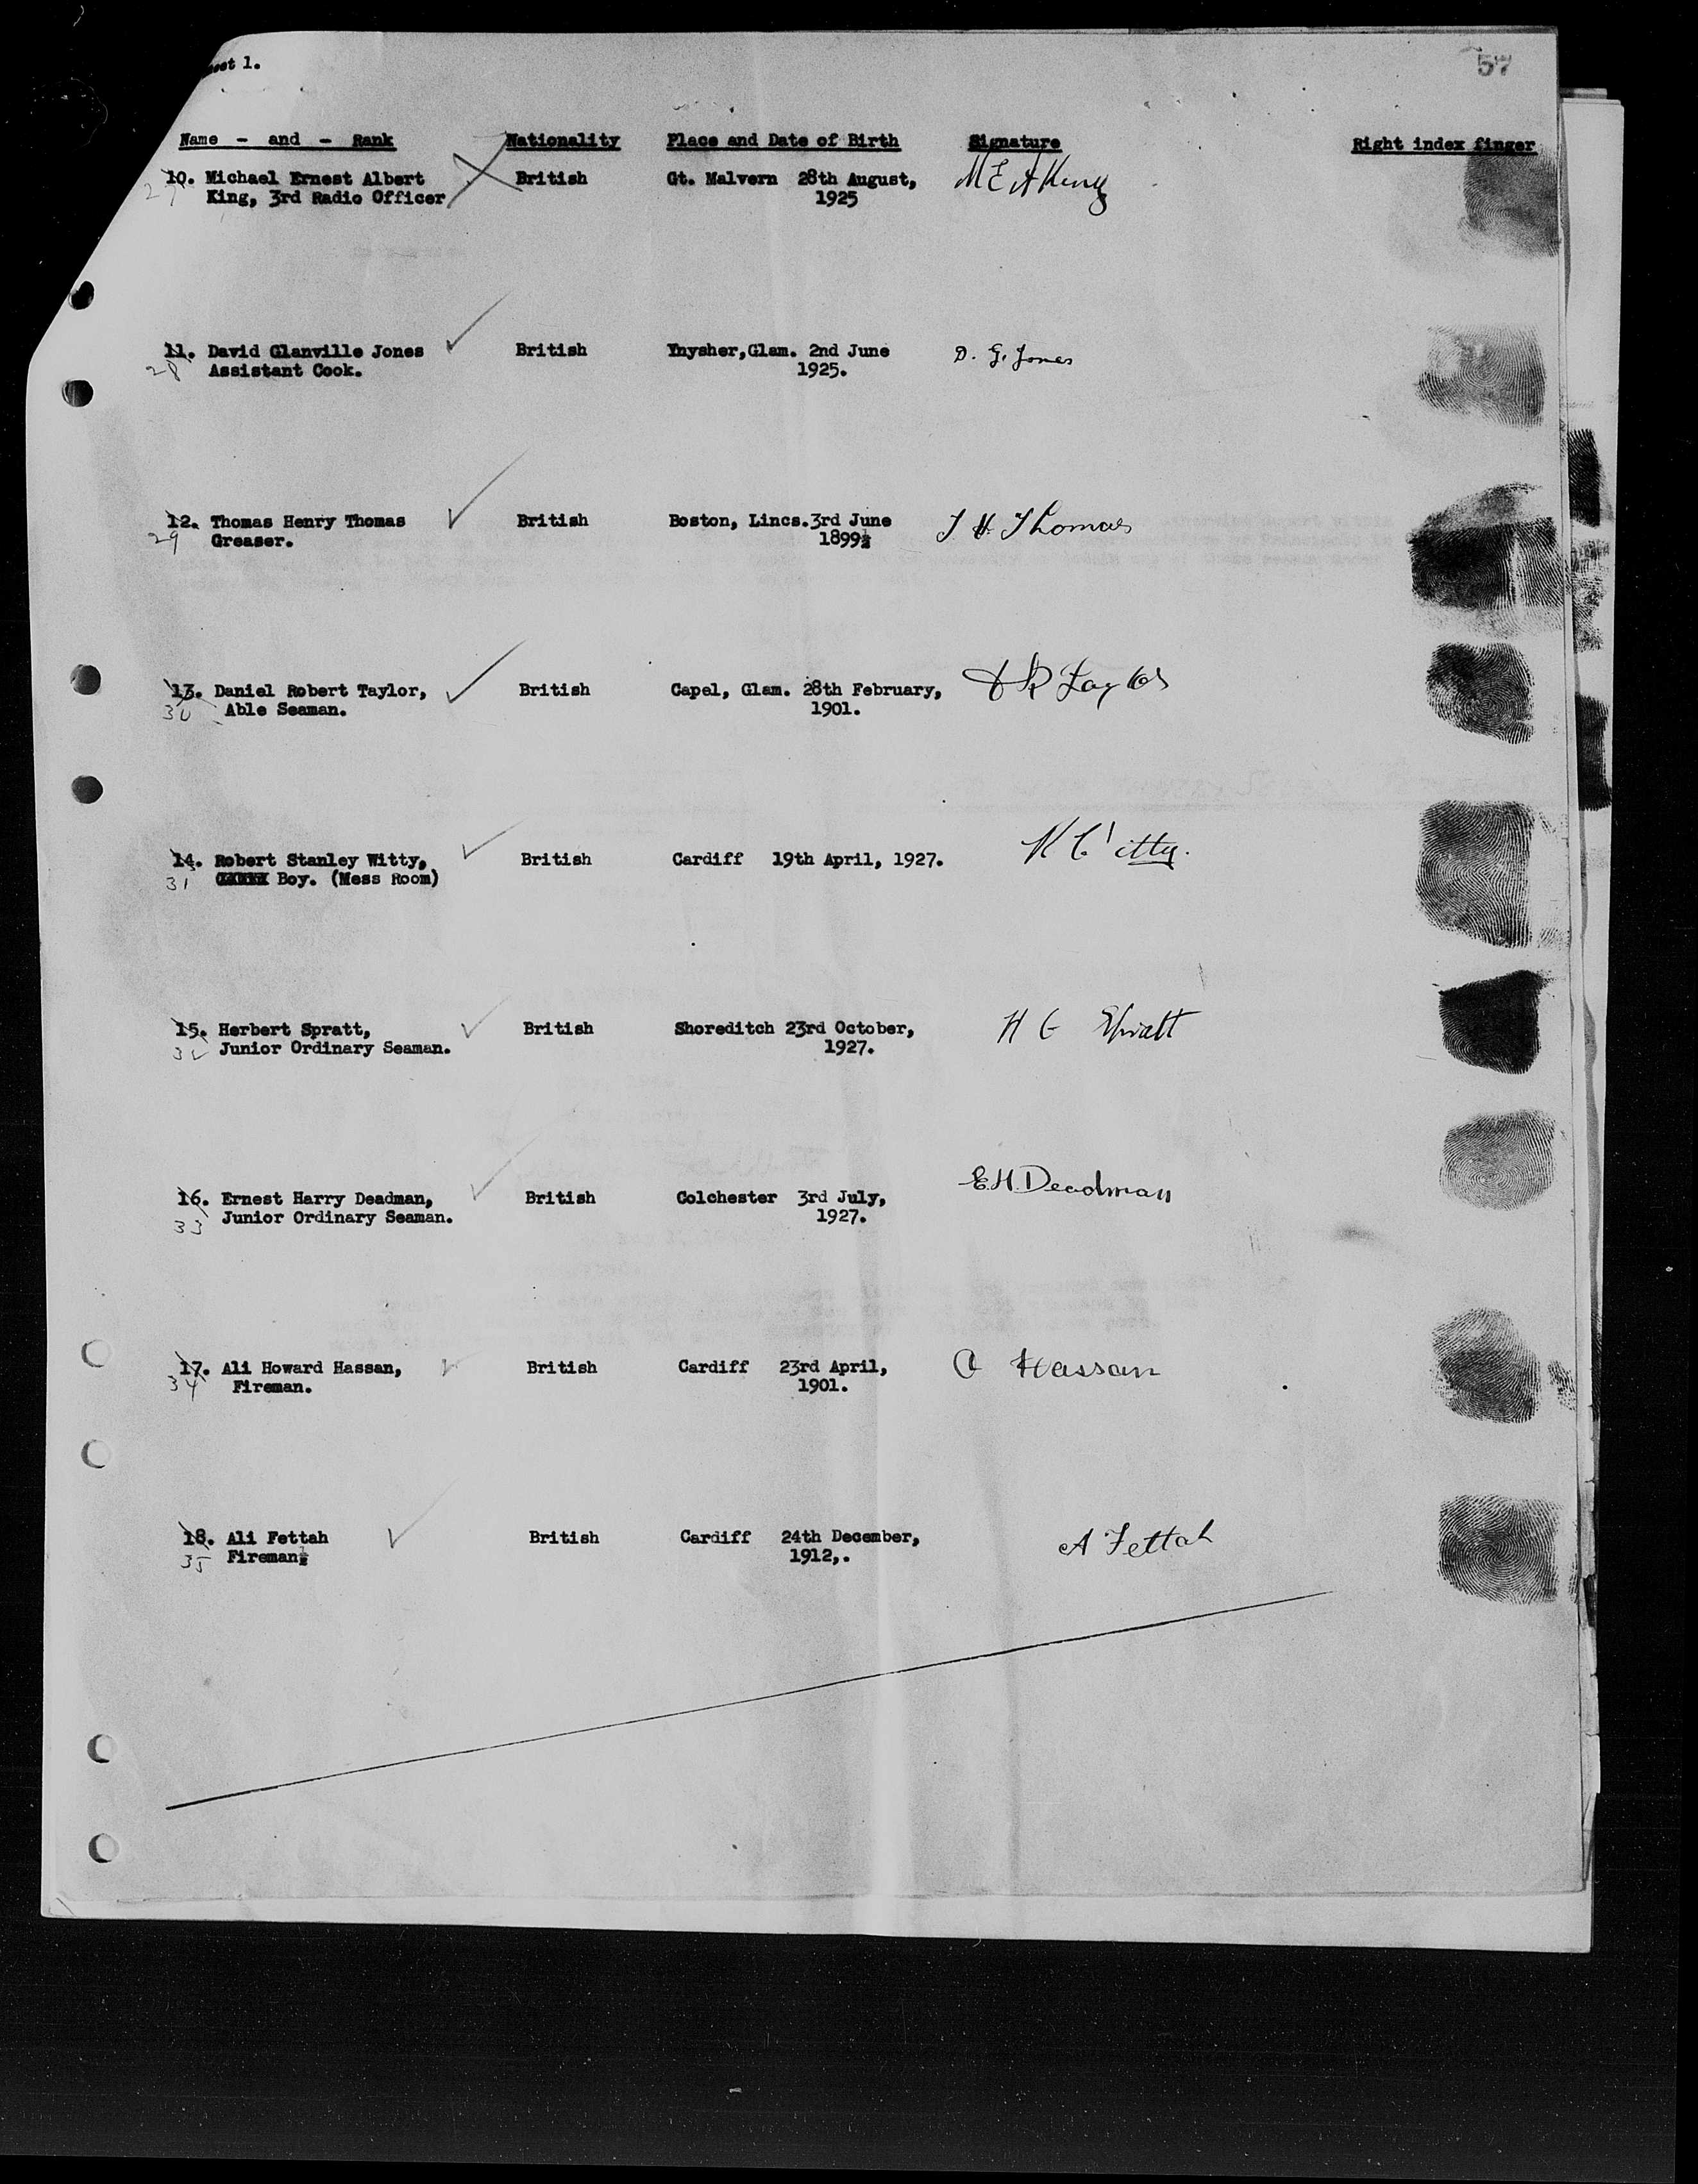 eet 1.
57
Name - and - Rank Nationality Place and Date of Birth Signature Right index finger
10. Michael Ernest Albert British Gt. Malvern 28th August, M E A King
27 King, 3rd Radio Officer 1925
11. David Glanville Jones British Ynysher,Glam. 2nd June D. G. Jones
28 Assistant Cook. 1925.
12. Thomas Henry Thomas British Boston, Lincs.3rd June T H Thomas
29 Greaser. 1899
13. Daniel Robert Taylor, British Capel, Glam. 28th February, D R Taylor
30 Able Seaman. 1901.
14. Robert Stanley Witty, British Cardiff 19th April, 1927. Witty.
31 Boy. (Mess Room)
15. Herbert Spratt, British Shoreditch 23rd October, H G Spratt
32 Junior Ordinary Seaman. 1927.
16. Ernest Harry Deadman, British Colchester 3rd July, E.H.Deadman
33 Junior Ordinary Seaman. 1927.
17. Ali Howard Hassan, British Cardiff 23rd April, A Hassan
34 Fireman. 1901.
18. Ali Fettah British Cardiff 24th December, A Fettah
35 Fireman. 1912,.